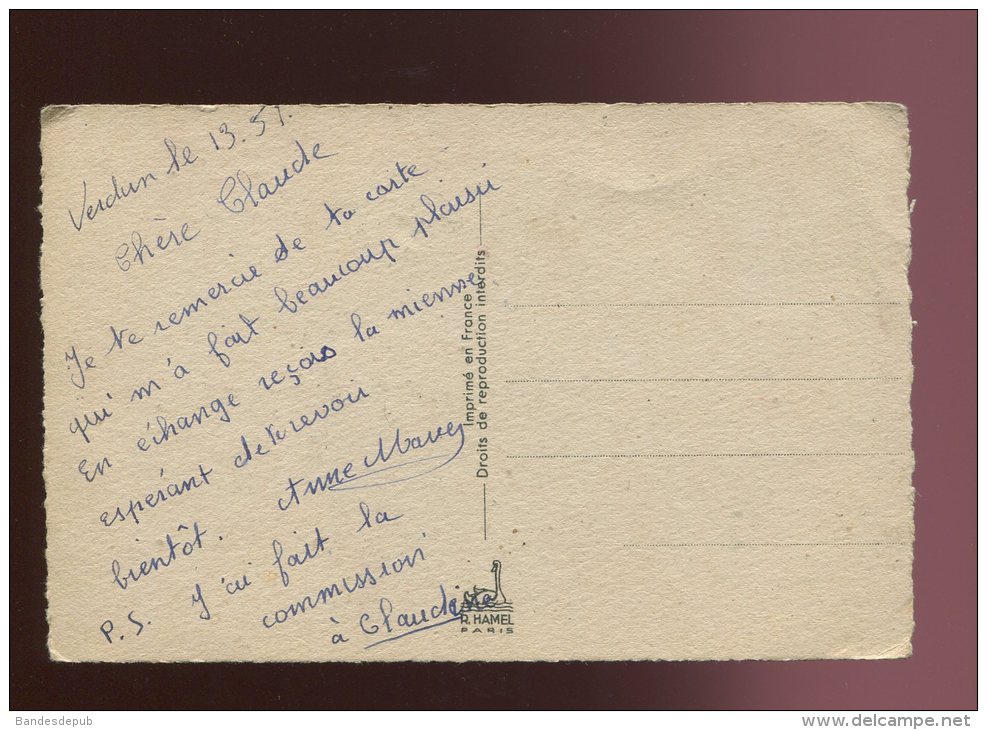 Verdun le 13.51.
Chère Claude
Je te remercie de ta carte
qui m'à fait beaucoup plaisir
En échange reçois la mienne
espérant de te revoir
bientôt. Anne Marie
P.S. J'ai fait la
commission
à Claudine
Imprimé en France
Droits de reproduction interdits
R. HAMEL
PARIS
Bandesdepub
www.delcampe.net